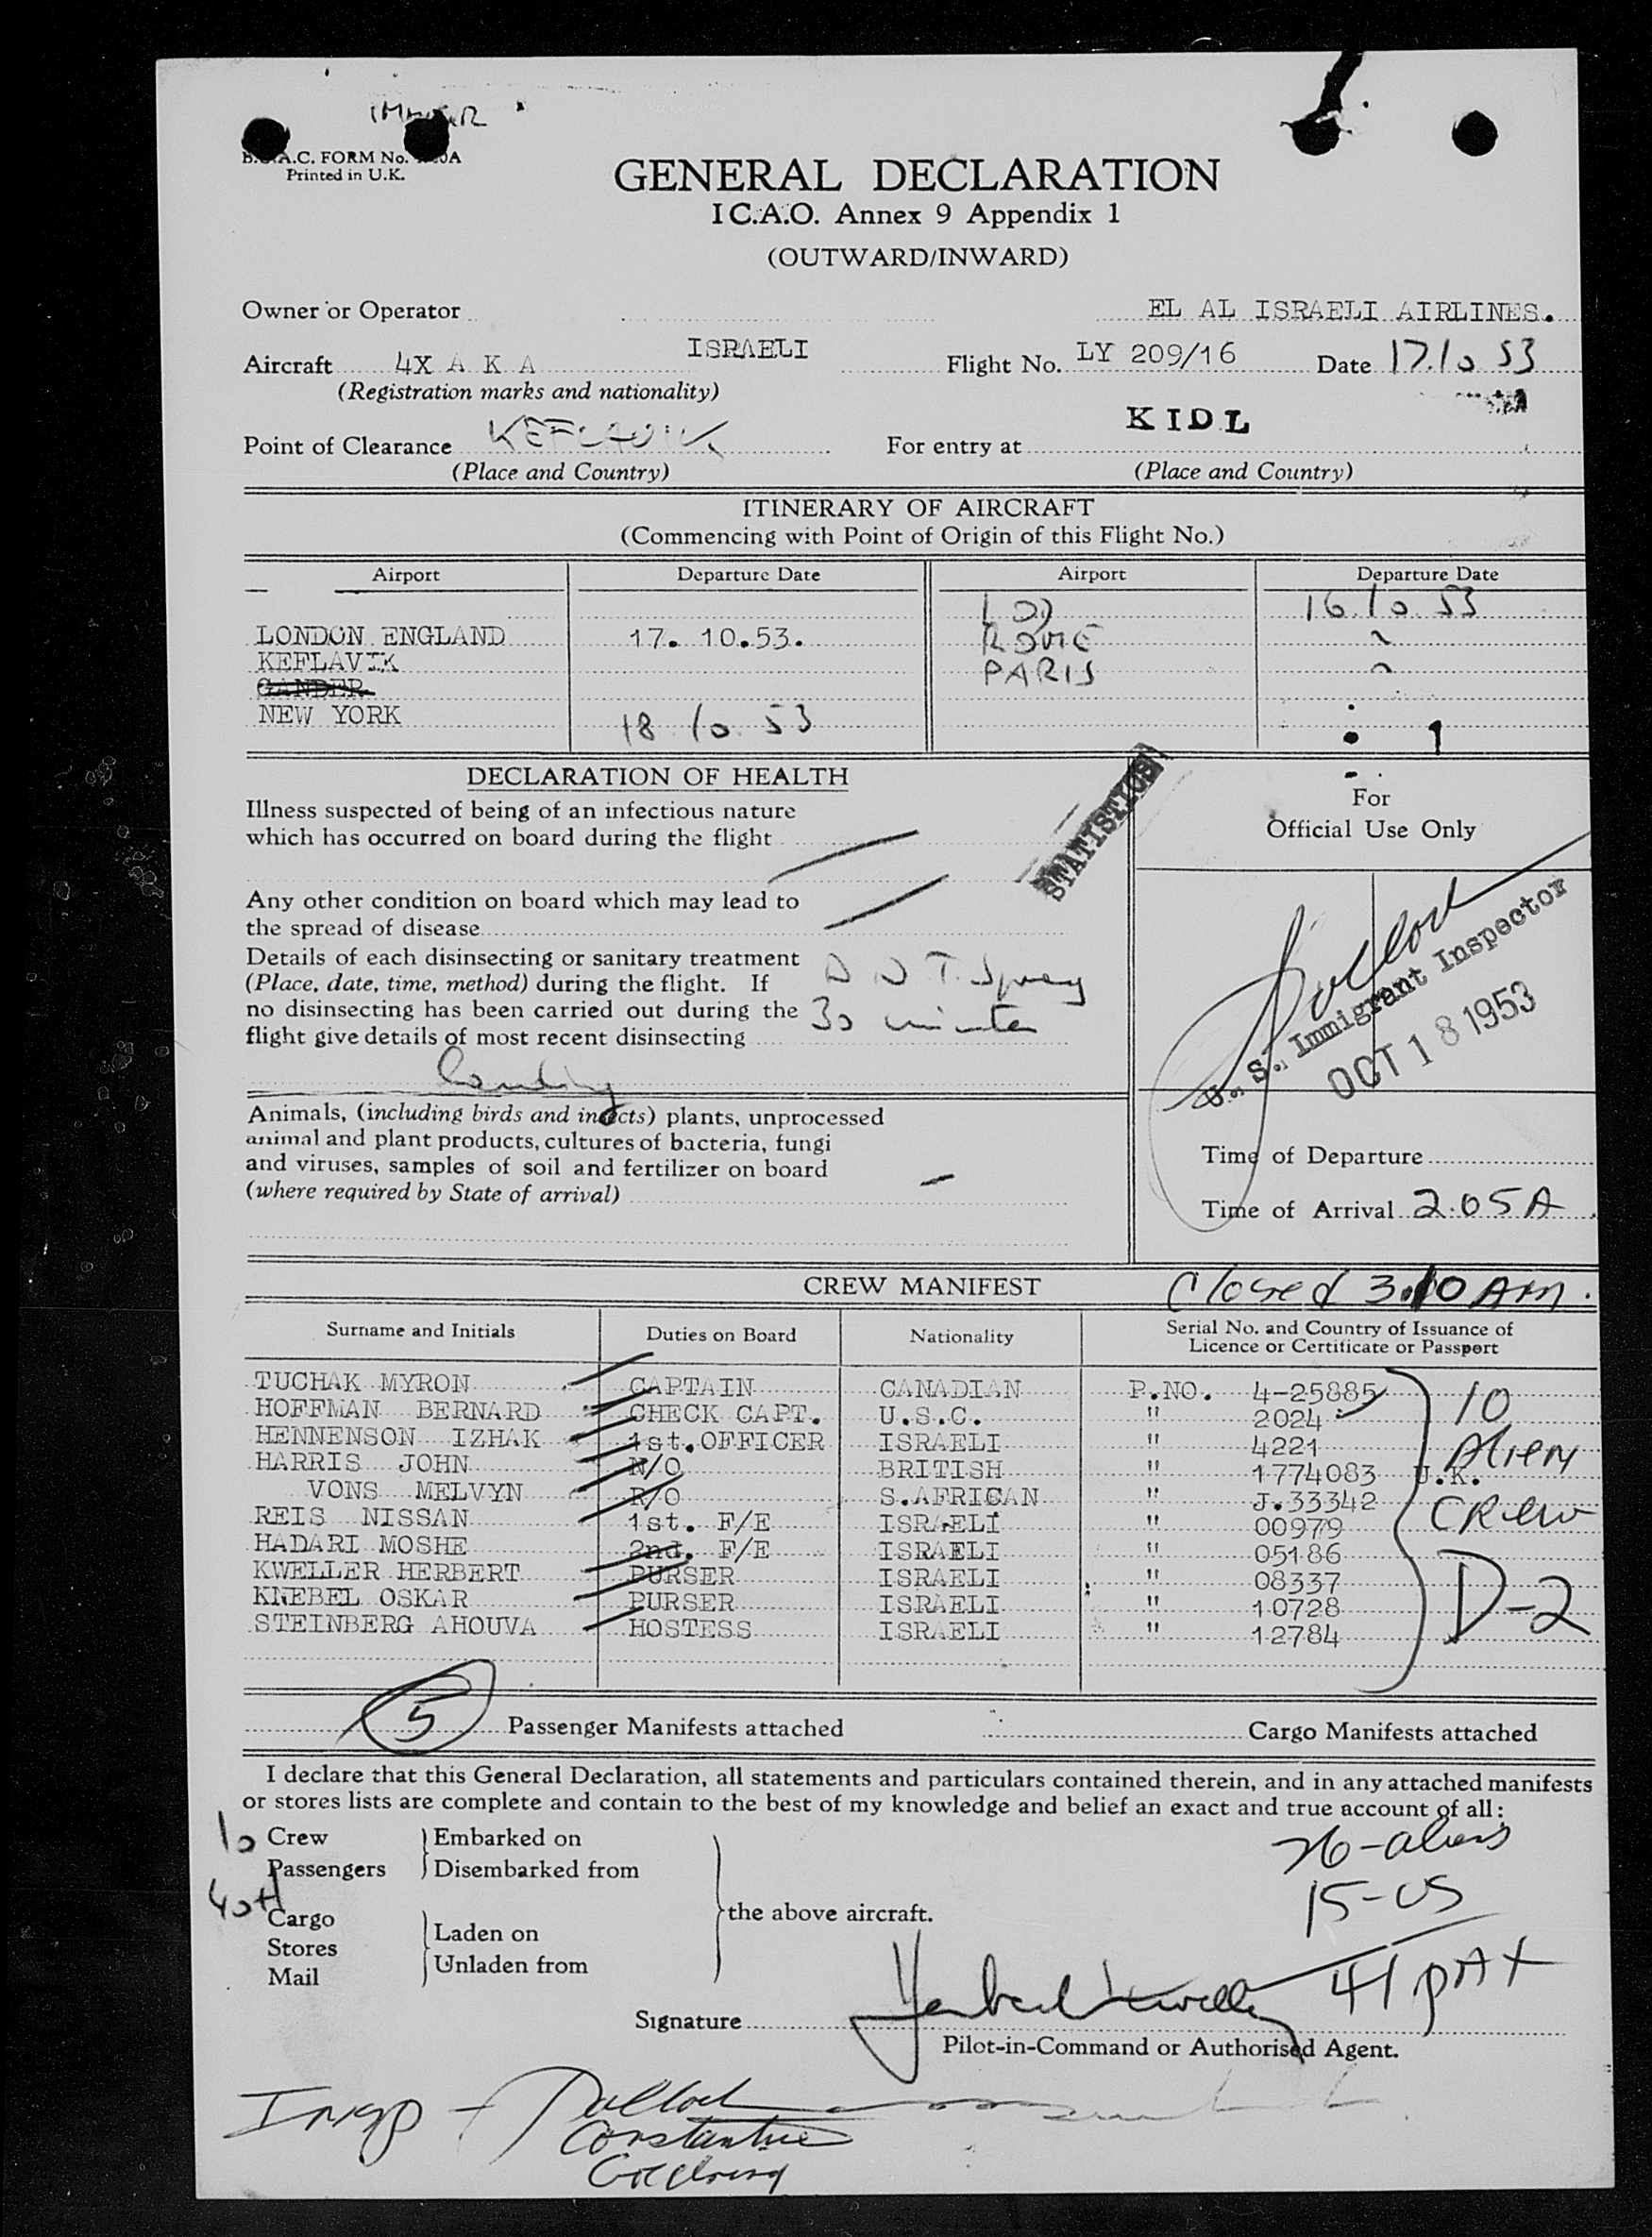 GENERAL DECLARATION
I C.A.O. Annex 9 Appendix 1
(OUTWARD/INWARD)
A.C. FORM No.
Printed in U.K.
Owner or Operator EL AL ISRAELI AIRLINES.
Aircraft 4X A K A ISRAELI Flight No. LY 209/16 Date 17.10 53
(Registration marks and nationality)
Point of Clearance KEFLAVIK For entry at KIDL
(Place and Country) (Place and Country)
ITINERARY OF AIRCRAFT
(Commencing with Point of Origin of this Flight No.)
Airport Departure Date Airport Departure Date
LOD 16.10.53
LONDON ENGLAND 17. 10.53. ROME "
KEFLAVIK PARIS "
GANDER
NEW YORK 18 10 53
DECLARATION OF HEALTH
Illness suspected of being of an infectious nature
which has occurred on board during the flight
Any other condition on board which may lead to
the spread of disease
Details of each disinsecting or sanitary treatment
(Place, date, time, method) during the flight. If
no disinsecting has been carried out during the
flight give details of most recent disinsecting
D D T. Spray
30 minutes
landing
STATISTICS
For
Official Use Only
U. S. Immigrant Inspector
OCT 18 1953
Animals, (including birds and insects) plants, unprocessed
animal and plant products, cultures of bacteria, fungi
and viruses, samples of soil and fertilizer on board
(where required by State of arrival)
Time of Departure
Time of Arrival 2.05 A
CREW MANIFEST Closed 3.10 AM.
Surname and Initials Duties on Board Nationality Serial No. and Country of Issuance of
Licence or Certificate or Passport
TUCHAK MYRON CAPTAIN CANADIAN P.NO. 4-25885
HOFFMAN BERNARD CHECK CAPT. U.S.C. " 2024
HENNENSON IZHAK 1st. OFFICER ISRAELI " 4221
HARRIS JOHN N/O BRITISH " 1774083 U.K.
VONS MELVYN R/O S.AFRICAN " J.33342
REIS NISSAN 1st. F/E ISRAELI " 00979
HADARI MOSHE 2nd. F/E ISRAELI " 05186
KWELLER HERBERT PURSER ISRAELI " 08337
KNEBEL OSKAR PURSER ISRAELI " 10728
STEINBERG AHOUVA HOSTESS ISRAELI " 12784
10
Alien
Crew
D-2
5 Passenger Manifests attached Cargo Manifests attached
I declare that this General Declaration, all statements and particulars contained therein, and in any attached manifests
or stores lists are complete and contain to the best of my knowledge and belief an exact and true account of all:
10 Crew Embarked on
Passengers Disembarked from
40+1
Cargo Laden on
Stores
Mail Unladen from
the above aircraft.
26-aliens
15-US
41 PAX
Signature
Pilot-in-Command or Authorised Agent.
Insp - Pollock
Constantine